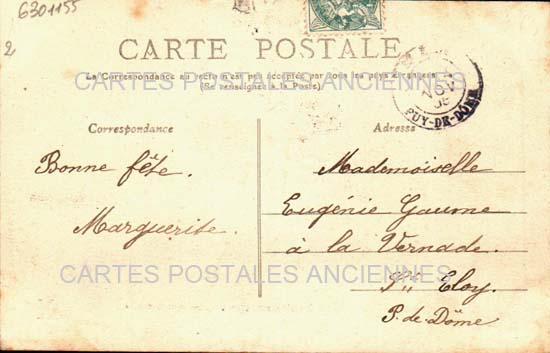 6301155
2
CARTE POSTALE
La Correspondance au recto n'est pas acceptée par tous les pays étrangers
(Se renseigner à la Poste)
CARTES POSTALES ANCIENNES
PUY-DE-DÔME
Correspondance
Adresse
Bonne fête.
Marguerite.
Mademoiselle
Eugénie Gaume
à la Vernade.
St Eloy.
P. de Dôme
CARTES POSTALES ANCIENNES